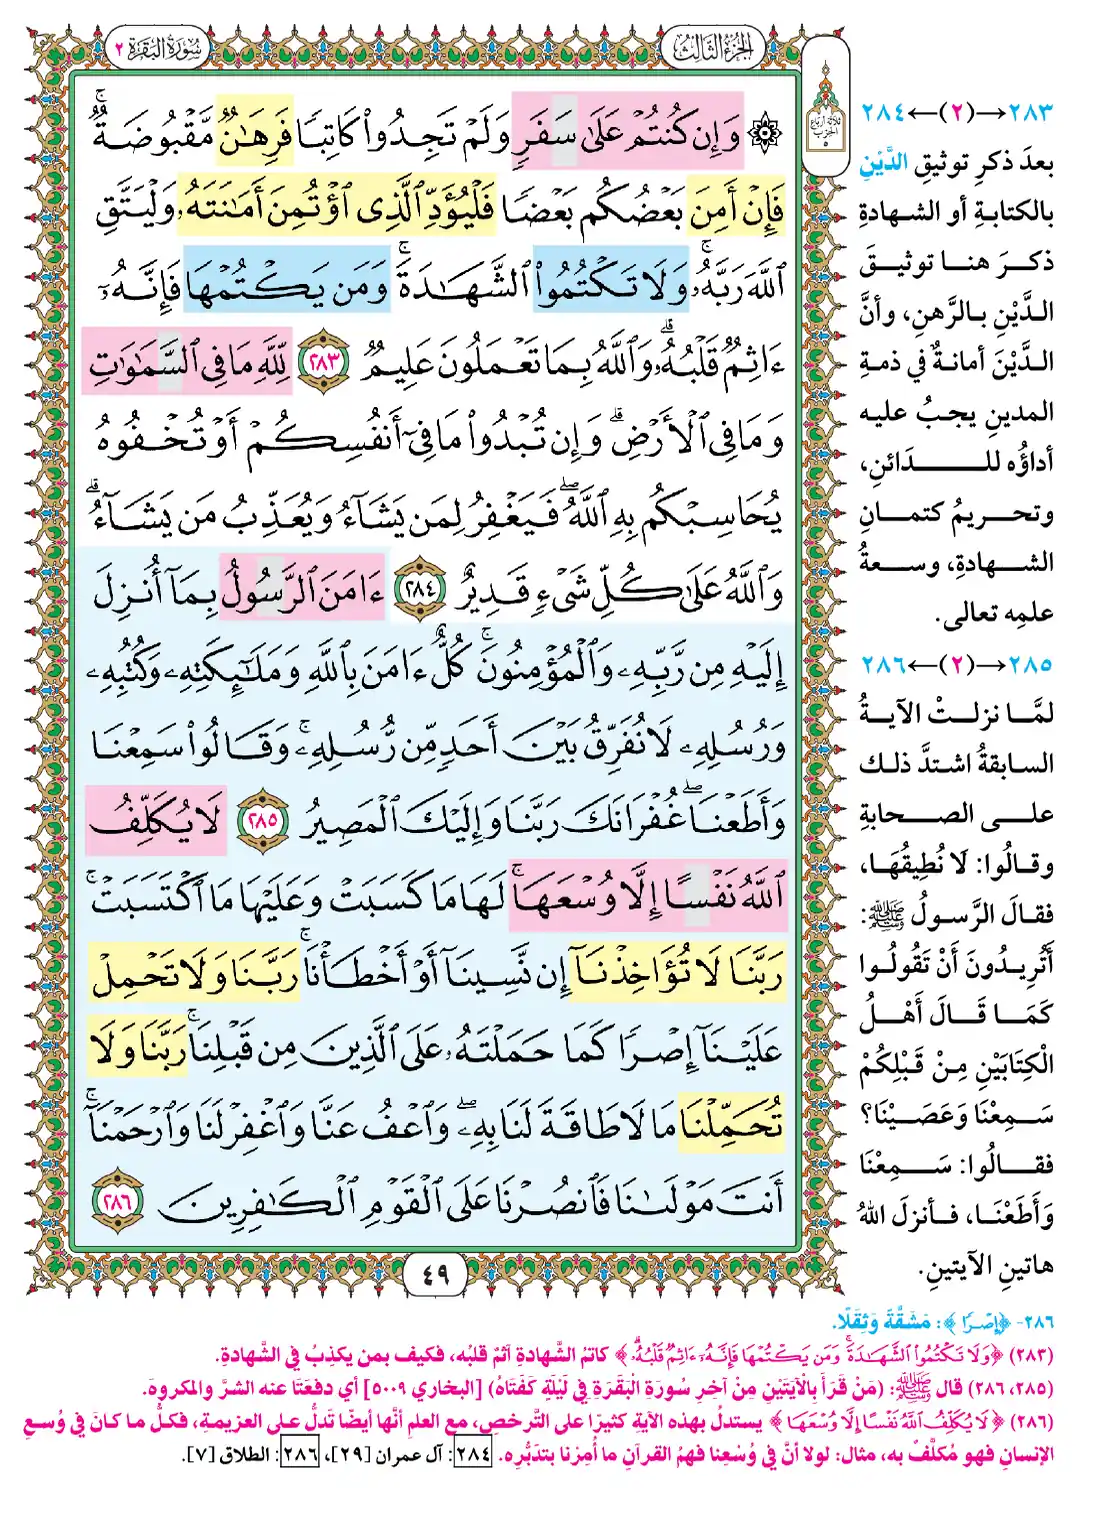 الجزء الثالث
سورة البقرة ٢
ثلاثة أرباع
الحزب
٥
۞ وَإِن كُنتُمْ عَلَىٰ سَفَرٍ وَلَمْ تَجِدُوا۟ كَاتِبًا فَرِهَٰنٌ مَّقْبُوضَةٌ ۖ
فَإِنْ أَمِنَ بَعْضُكُم بَعْضًا فَلْيُؤَدِّ ٱلَّذِى ٱؤْتُمِنَ أَمَٰنَتَهُۥ وَلْيَتَّقِ
ٱللَّهَ رَبَّهُۥ ۗ وَلَا تَكْتُمُوا۟ ٱلشَّهَٰدَةَ ۚ وَمَن يَكْتُمْهَا فَإِنَّهُۥٓ
ءَاثِمٌ قَلْبُهُۥ ۗ وَٱللَّهُ بِمَا تَعْمَلُونَ عَلِيمٌ ٢٨٣ لِّلَّهِ مَا فِى ٱلسَّمَٰوَٰتِ
وَمَا فِى ٱلْأَرْضِ ۗ وَإِن تُبْدُوا۟ مَا فِىٓ أَنفُسِكُمْ أَوْ تُخْفُوهُ
يُحَاسِبْكُم بِهِ ٱللَّهُ ۖ فَيَغْفِرُ لِمَن يَشَآءُ وَيُعَذِّبُ مَن يَشَآءُ ۗ
وَٱللَّهُ عَلَىٰ كُلِّ شَىْءٍ قَدِيرٌ ٢٨٤ ءَامَنَ ٱلرَّسُولُ بِمَآ أُنزِلَ
إِلَيْهِ مِن رَّبِّهِۦ وَٱلْمُؤْمِنُونَ ۚ كُلٌّ ءَامَنَ بِٱللَّهِ وَمَلَٰٓئِكَتِهِۦ وَكُتُبِهِۦ
وَرُسُلِهِۦ لَا نُفَرِّقُ بَيْنَ أَحَدٍ مِّن رُّسُلِهِۦ ۚ وَقَالُوا۟ سَمِعْنَا
وَأَطَعْنَا ۖ غُفْرَانَكَ رَبَّنَا وَإِلَيْكَ ٱلْمَصِيرُ ٢٨٥ لَا يُكَلِّفُ
ٱللَّهُ نَفْسًا إِلَّا وُسْعَهَا ۚ لَهَا مَا كَسَبَتْ وَعَلَيْهَا مَا ٱكْتَسَبَتْ ۗ
رَبَّنَا لَا تُؤَاخِذْنَآ إِن نَّسِينَآ أَوْ أَخْطَأْنَا ۚ رَبَّنَا وَلَا تَحْمِلْ
عَلَيْنَآ إِصْرًا كَمَا حَمَلْتَهُۥ عَلَى ٱلَّذِينَ مِن قَبْلِنَا ۚ رَبَّنَا وَلَا
تُحَمِّلْنَا مَا لَا طَاقَةَ لَنَا بِهِۦ ۖ وَٱعْفُ عَنَّا وَٱغْفِرْ لَنَا وَٱرْحَمْنَآ ۚ
أَنتَ مَوْلَىٰنَا فَٱنصُرْنَا عَلَى ٱلْقَوْمِ ٱلْكَٰفِرِينَ ٢٨٦
٤٩
٢٨٣→(٢)←٢٨٤
بعدَ ذكرِ توثيقِ الدَّيْنِ
بالكتابةِ أو الشهادةِ
ذكرَ هنا توثيقَ
الدَّيْنِ بالرَّهنِ، وأنَّ
الدَّيْنَ أمانةٌ في ذمةِ
المدينِ يجبُ عليه
أداؤُه للدَائنِ،
وتحريمُ كتمانِ
الشهادةِ، وسعةُ
علمِه تعالى.
٢٨٥→(٢)←٢٨٦
لمَّا نزلتْ الآيةُ
السابقةُ اشتدَّ ذلك
على الصحابةِ
وقالُوا: لَا نُطِيقُهَا،
فقالَ الرَّسولُ ﷺ:
أَتُرِيدُونَ أَنْ تَقُولُوا
كَمَا قَالَ أَهْلُ
الْكِتَابَيْنِ مِنْ قَبْلِكُمْ
سَمِعْنَا وَعَصَيْنَا؟
فقالُوا: سَمِعْنَا
وَأَطَعْنَا، فأنزلَ اللهُ
هاتينِ الآيتينِ.
٢٨٦- ﴿إِصْرًا﴾: مَشَقَّةً وَثِقَلًا.
(٢٨٣) ﴿وَلَا تَكْتُمُوا۟ ٱلشَّهَٰدَةَ ۚ وَمَن يَكْتُمْهَا فَإِنَّهُۥٓ ءَاثِمٌ قَلْبُهُۥ ۗ﴾ كاتمُ الشَّهادةِ آثمٌ قلبُه، فكيف بمن يكذِبُ في الشَّهادةِ.
(٢٨٥، ٢٨٦) قال ﷺ: (مَنْ قَرَأَ بِالْآيَتَيْنِ مِنْ آخِرِ سُورَةِ الْبَقَرَةِ فِي لَيْلَةٍ كَفَتَاهُ) [البخاري ٥٠٠٩] أي دفعَتَا عنه الشرَّ والمكروهَ.
(٢٨٦) ﴿لَا يُكَلِّفُ ٱللَّهُ نَفْسًا إِلَّا وُسْعَهَا﴾ يستدلُ بهذه الآيةِ كثيرًا على التَّرخصِ، مع العلمِ أنَّها أيضًا تَدلُّ على العزيمةِ، فكلُّ ما كانَ في وُسعِ
الإنسانِ فهو مُكلَّفٌ به، مثال: لولا أنَّ في وُسْعِنا فهمُ القرآنِ ما أُمِرْنا بتدَبُّرِه. ٢٨٤: آل عمران [٢٩]، ٢٨٦: الطلاق [٧].